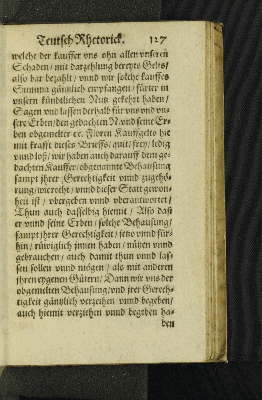 Teutsch Rhetorick. 127
welche der kauffer vns ohn allen vnsern
Schaden / mit darzehlung bereyts Gelts /
also bar bezahlt / vnnd wir solche kauffes
Summa gäntzlich empfangen / fürter in
vnsern kündtlichen Nutz gekehrt haben /
Sagen vnd lassen derhalb für vns vnd vn-
sere Erben / den gedachten N vnd seine Er-
ben obgemelter ꝛc. Floren Kauffgelts hie
mit krafft dieses Brieffs / quit / frey / ledig
vnnd loß / wir haben auch darauff dem ge-
dachten Kauffer / obgenannte Behausung
sampt jhrer Gerechtigkeit vnnd zugehö-
rung / wie recht / vnnd dieser Statt gewon-
heit ist / vbergeben vnnd vberantwortet /
Thun auch dasselbig hiemit / Also daß
er vnnd seine Erben / solche Behausung /
sampt jhrer Gerechtigkeit / jetzo vnnd für-
hin / rüwiglich jnnen haben / nützen vnnd
gebrauchen / auch damit thun vnnd las-
sen sollen vnnd mögen / als mit anderen
jhren eygenen Gütern / Dann wir vns der
obgemelten Behausung / vnd jrer Gerech-
tigkeit gäntzlich verzeihen vnnd begeben /
auch hiemit verziehen vnnd begeben ha-
ben